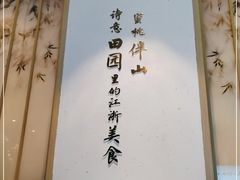 蜜桃伴山
诗意田园里的江浙美食